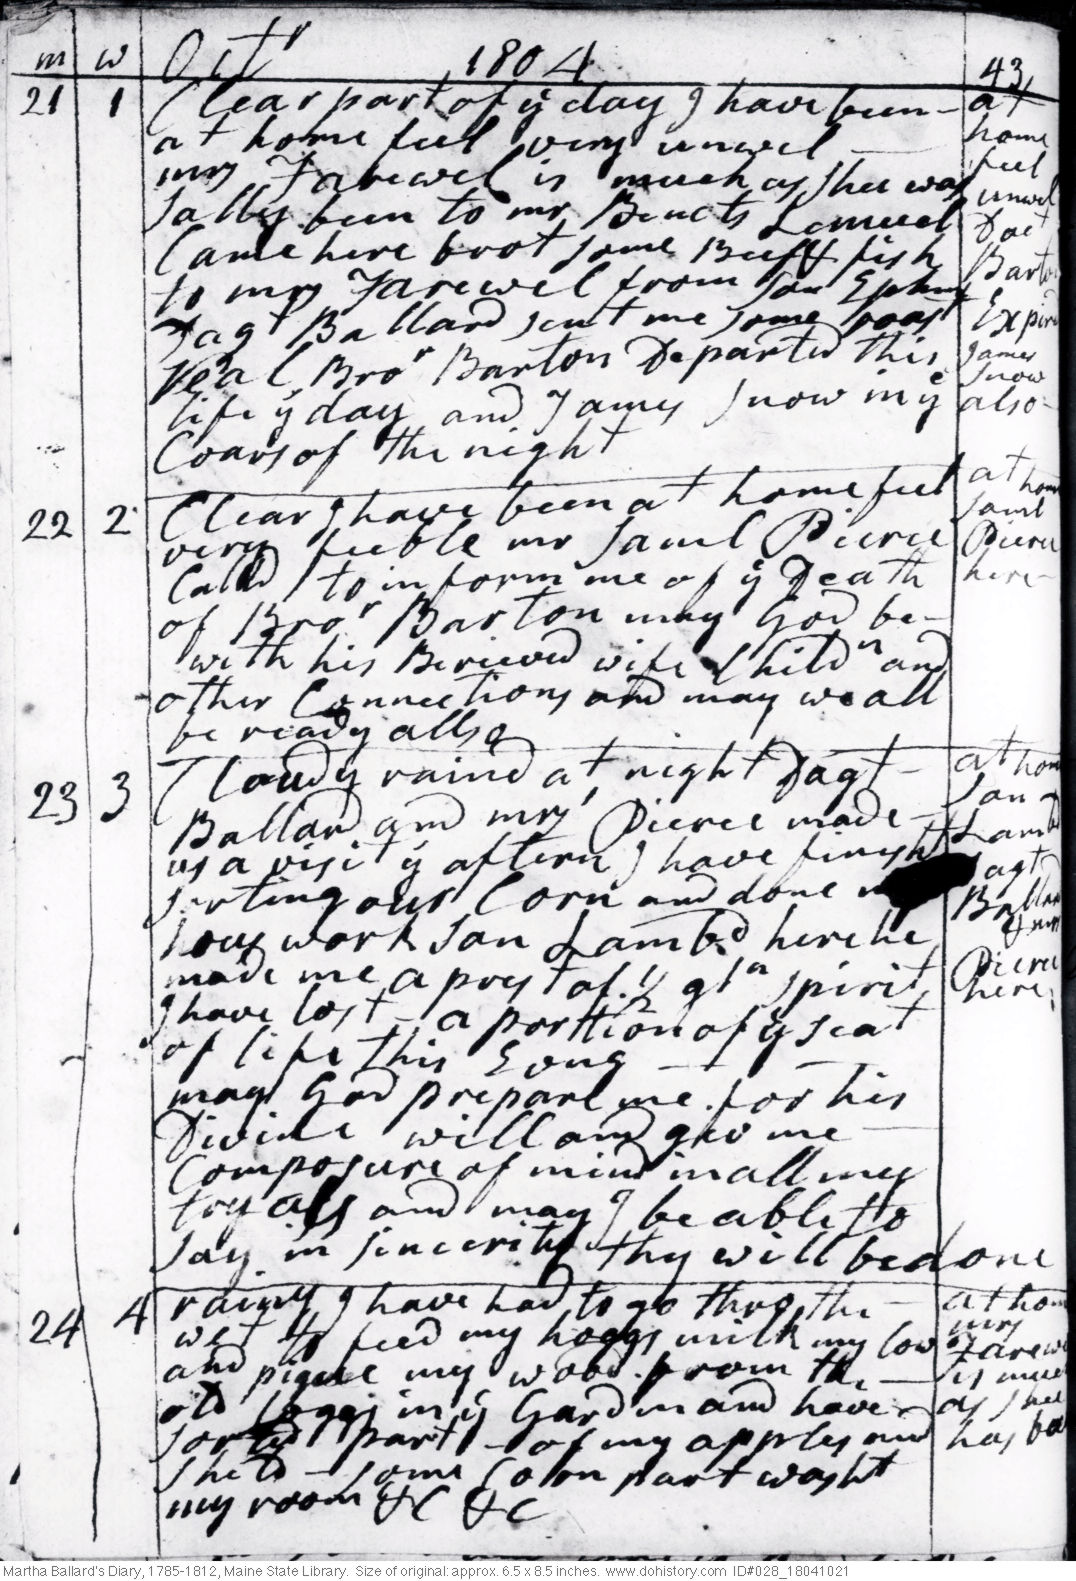 m w Oct r 1804 43
21 1 Clear part of ÿ day I have been - at
at home feel very unwel — home
mrs Farewel is much as shee was feel
Sally been to mr Benets Lemuel unwel
Came here brot some Beeff & fish Doct
to mrs Farewel from Son Ephm Barton
Dagt Ballard sent me some roast Expird
Veal Bror Barton Departed this James
life ÿ day and James Snow in ÿ Snow
Coars of the night also -
22 2 Clear I have been at home feel at home
very feeble mr Saml Pierce Saml
Calld to inform me of ÿ Death Pierce
of Bror Barton may God be - here -
with his Berieved wife Childn and
other Connections and may we all
be ready allso
23 3 Cloudy raind at night Dagt - at home
Ballard and mrs Pierce made - Son
us a visit ÿ aftern I have finisht Lambd
sorting our Corn and done my Dagt
hous work Son Lambd here he Ballard
made me a prest of gln spirit & mrs
I have lost - a porttion of ÿ seat Pierce
of life this Evng — here
may God prepare me for his
Divine will and giv me —
Composure of mind in all my
tryals and may I be able to
say in sincerity thy will be done
24 4 rainy I have had to go thro the - at home
wet to feed my hoggs milk my Cow mrs
and pique my wood from the — Farewel
old loggs in ÿ Gardin and have is much
sorted part - of my apples and as shee
sheld - some Corn part washt has been
my room &C &C
Martha Ballard's Diary, 1785-1812, Maine State Library. Size of original: approx. 6.5 x 8.5 inches. www.dohistory.com ID#028_18041021